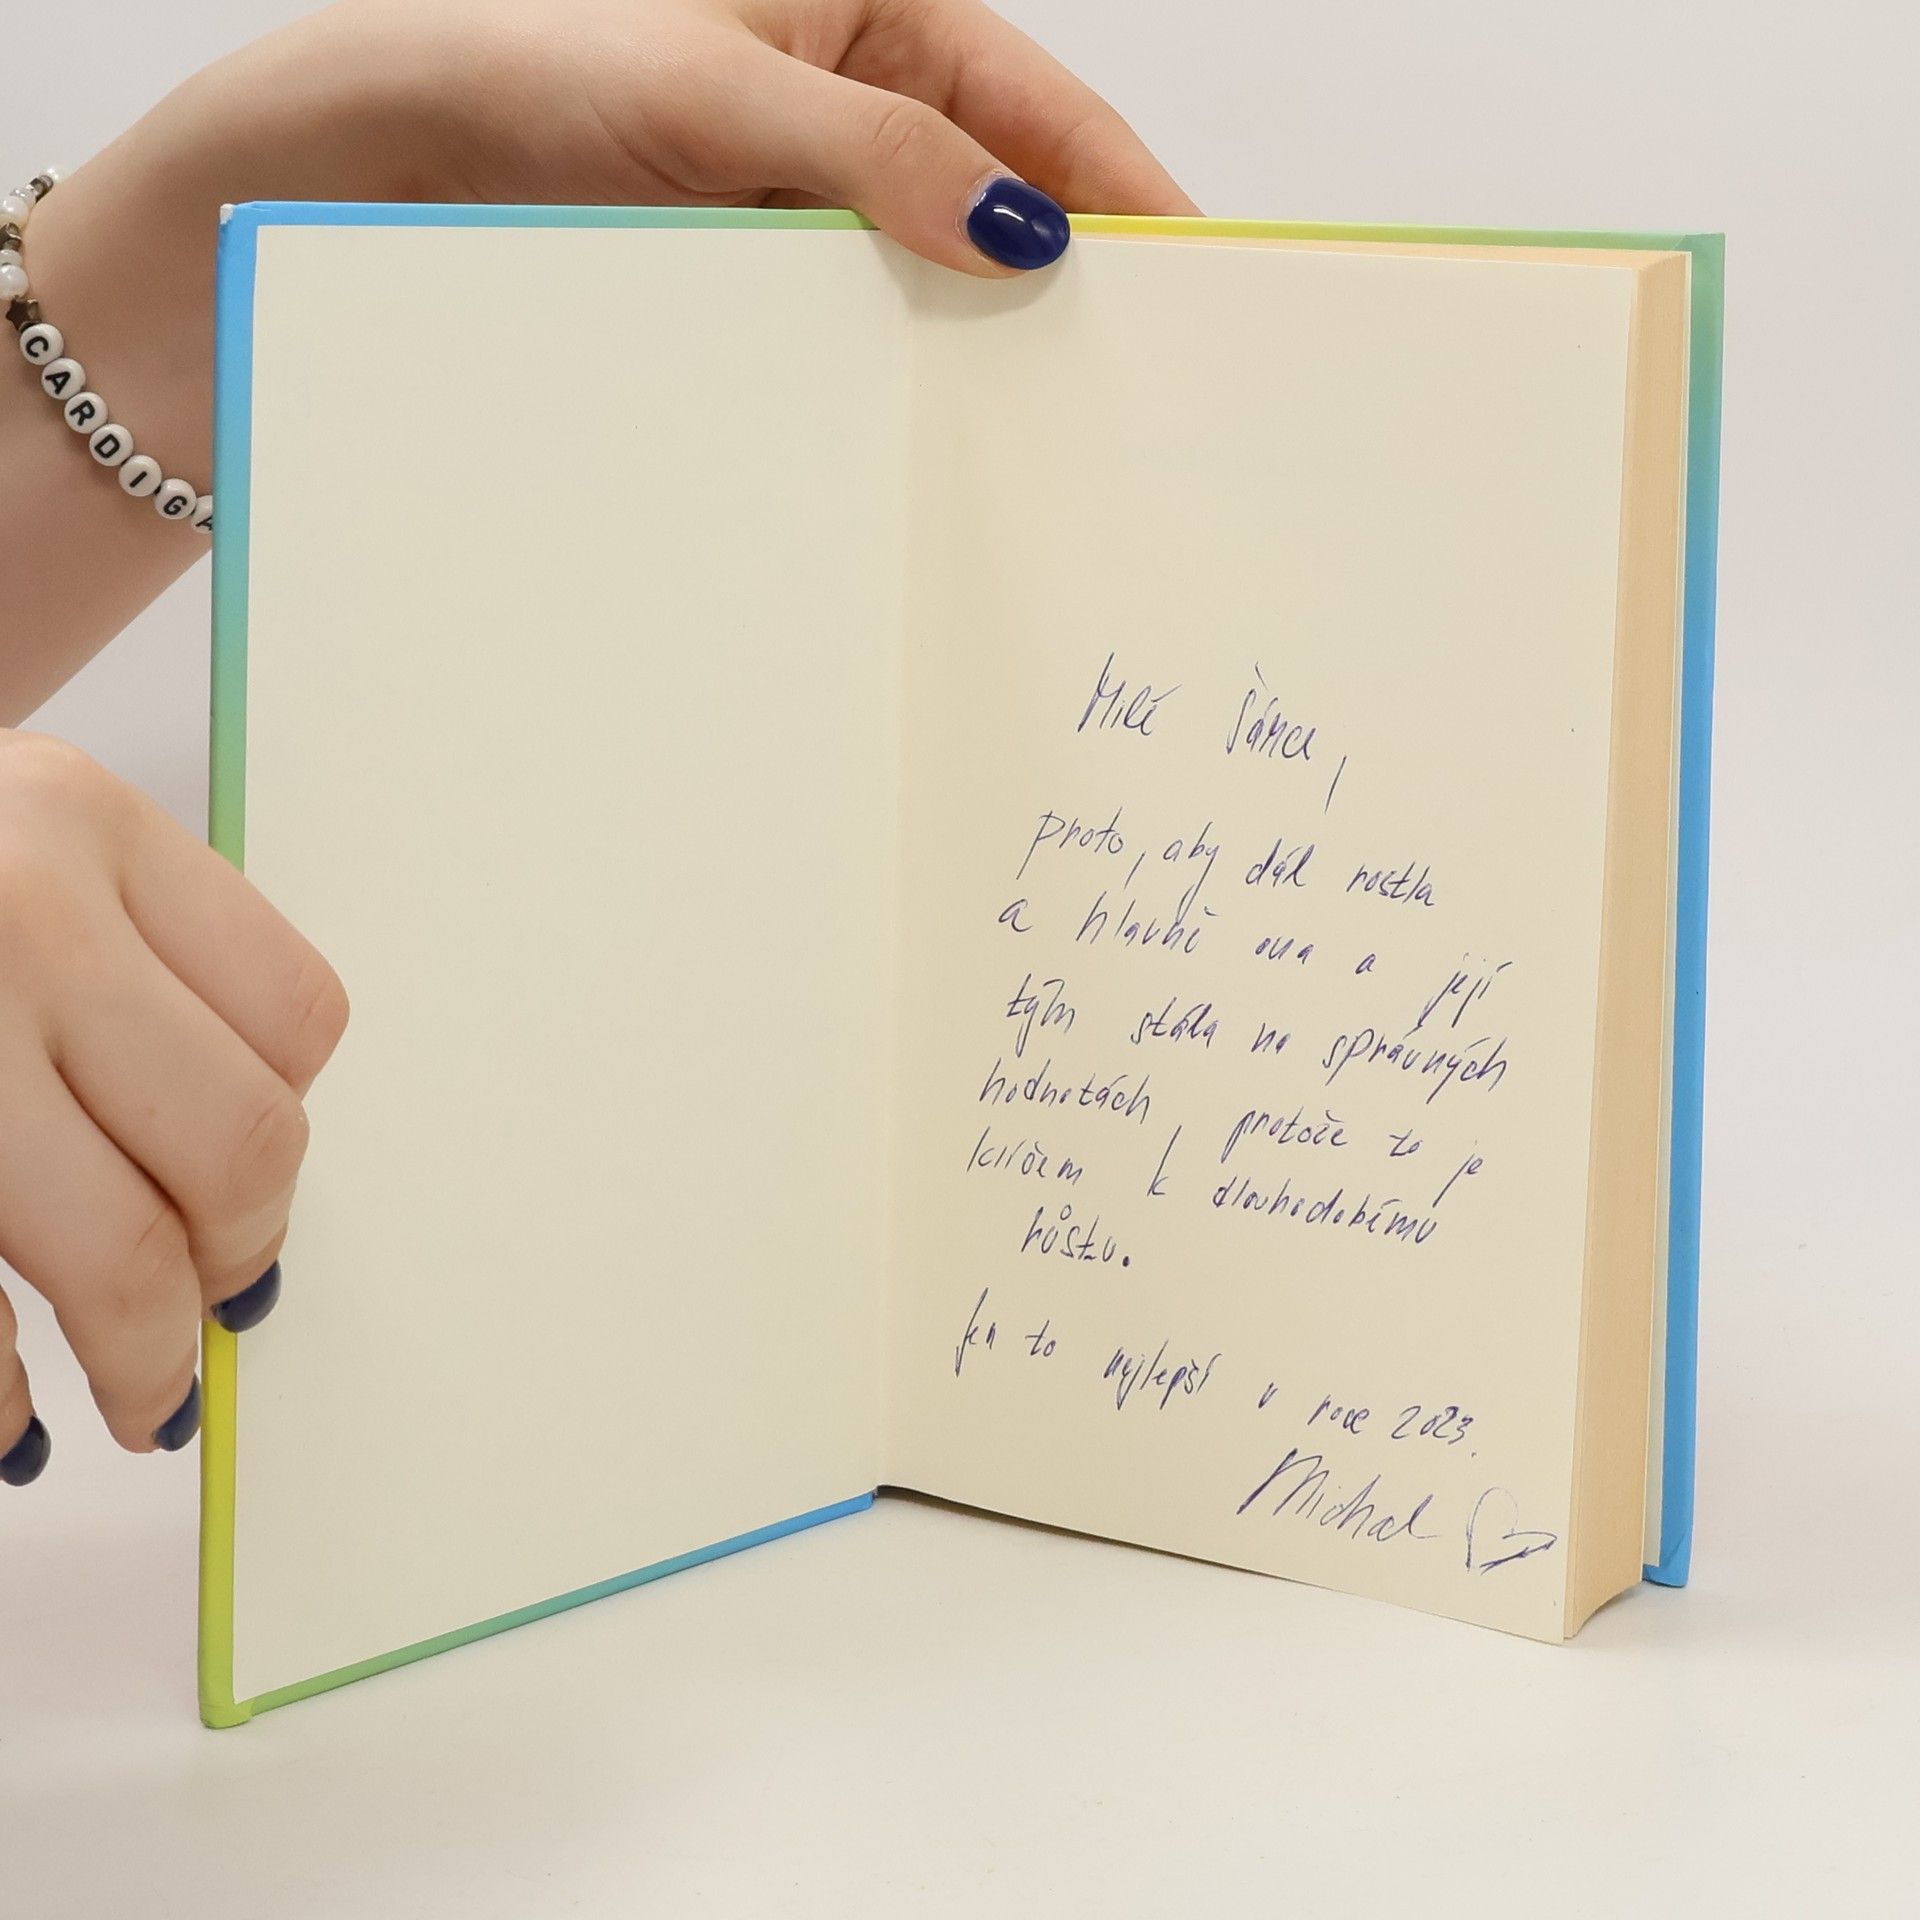 CARDIGA
Milé Šárce,
proto, aby dál rostla
a hlavně ona a její
tým stála na správných
hodnotách, protože to je
klíčem k dlouhodobému
růstu.
Jen to nejlepší v roce 2023.
Michal